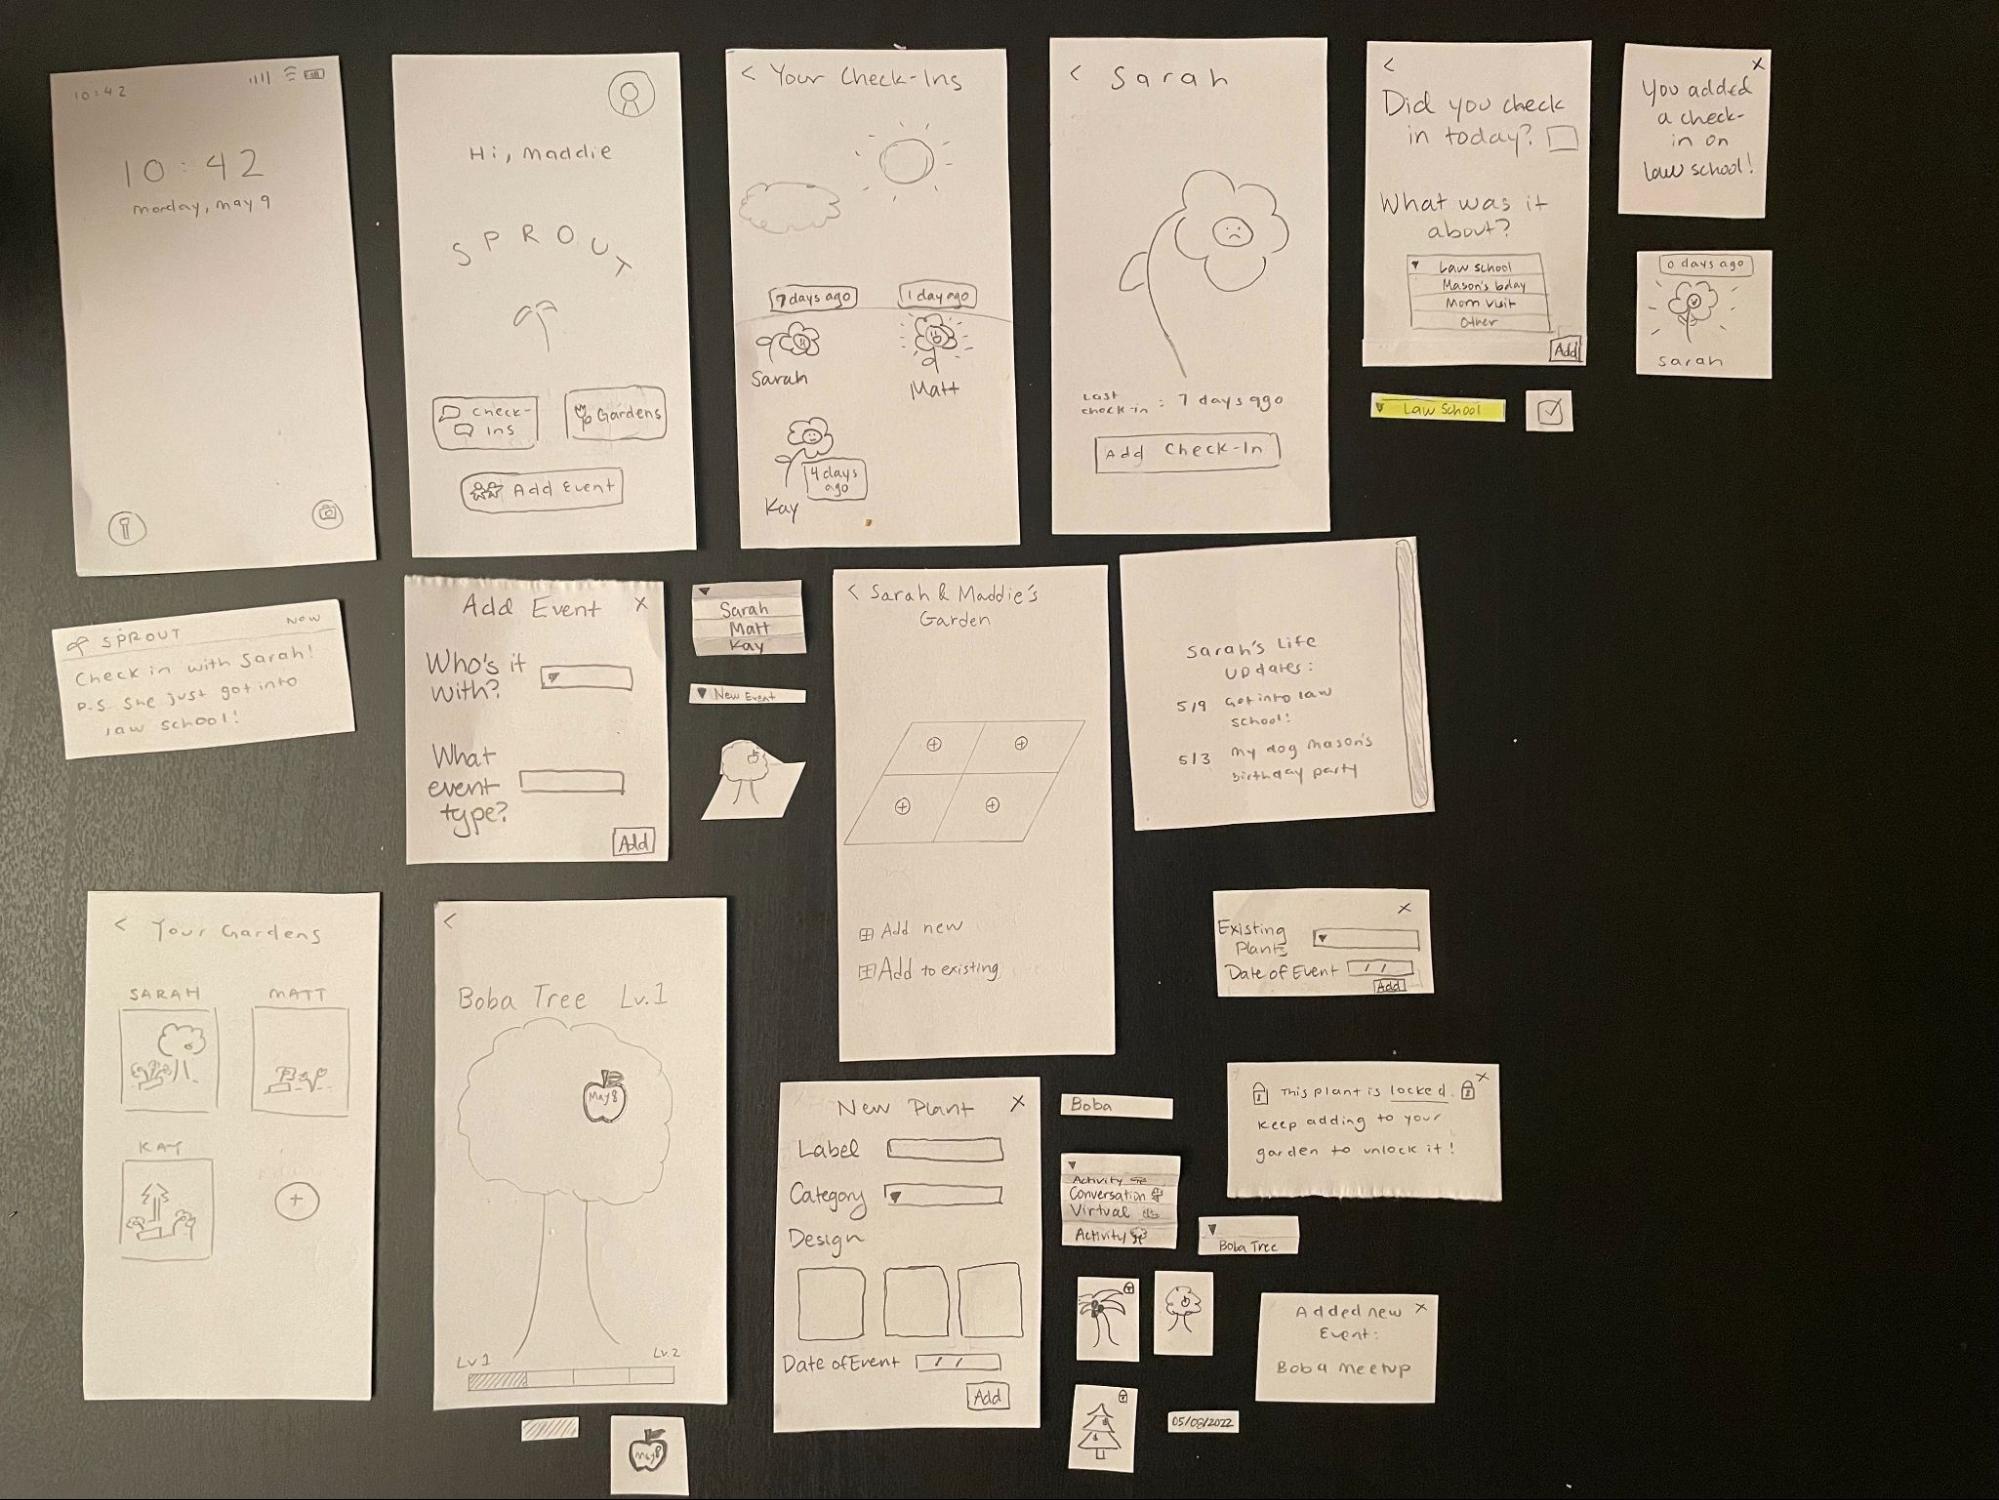 10:42
10:42
monday, may 9
Hi, maddie
SPROUT
Check-
Ins
Gardens
Add Event
< Your Check-Ins
7 days ago
1 day ago
Sarah
Matt
4 days
ago
Kay
< Sarah
Last
check-in : 7 days ago
Add Check-In
<
Did you check
in today?
What was it
about?
Law school
Mason's bday
Mom visit
Other
Add
Law School
X
You added
a check-
in on
law school!
0 days ago
sarah
SPROUT
NOW
Check in with Sarah!
P.S. she just got into
law school!
Add Event X
Who's it
with?
What
event
type?
Add
Sarah
Matt
Kay
New Event
< Sarah & Maddie's
Garden
Add new
Add to existing
Sarah's Life
Updates:
5/9 Got into law
school!
5/3 my dog mason's
birthday party
X
Existing
Plants
Date of Event / /
Add
< Your Gardens
SARAH
MATT
KAY
<
Boba Tree Lv.1
May 8
Lv1
Lv.2
May 8
New Plant X
Label
Category
Design
Date of Event / /
Add
Boba
Activity
Conversation
Virtual
Activity
Boba Tree
X
This plant is locked.
Keep adding to your
garden to unlock it!
Added new X
Event:
Boba meetup
05/08/2022